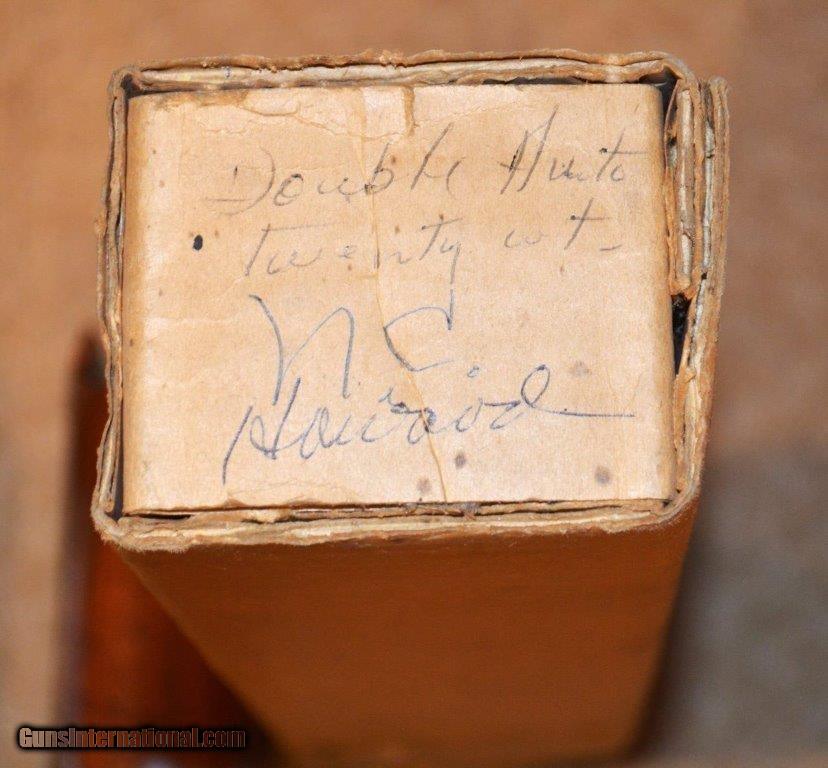 Double Auto
twenty wt-
N C.
Howard
GunsInternational.com